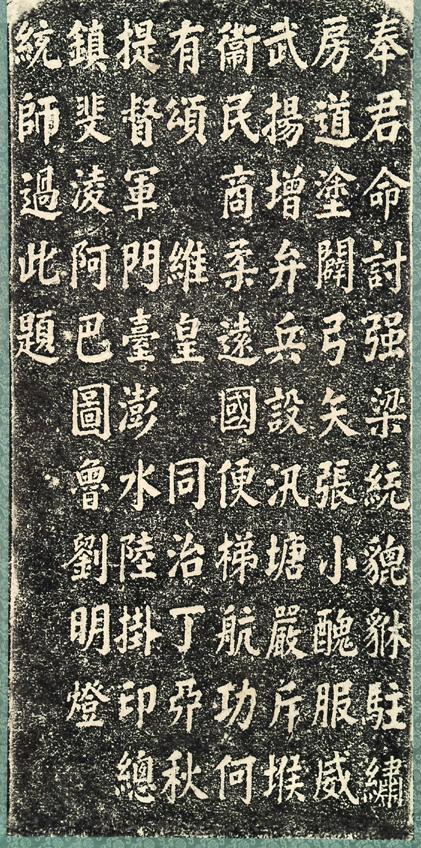 奉君命討强梁統貔貅駐繡
房道塗闢弓矢張小醜服威
武揚增弁兵設汛塘嚴斥堠
衞民商柔遠國便梯航功何
有頌維皇同治丁丣秋
提督軍門臺澎水陸掛印總
鎮斐凌阿巴圖魯劉明燈
統師過此題